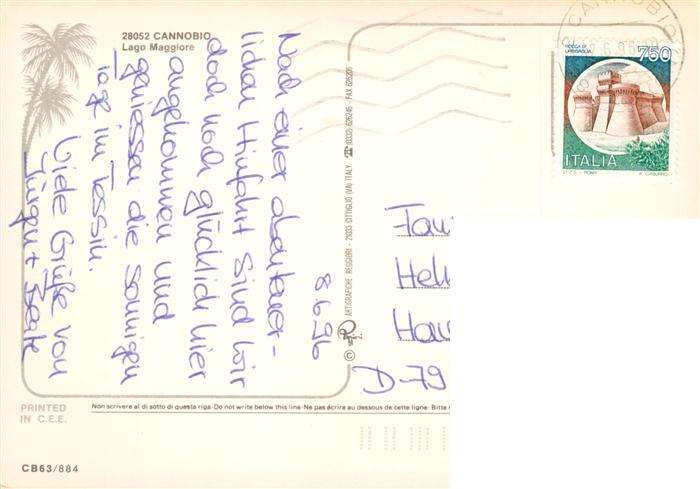 28052 CANNOBIO
Lago Maggiore
8.6.96
Nach einer abenteuer-
lichen Hinfahrt sind wir
doch noch glücklich hier
angekommen und
geniessen die sonnigen
Tage im Tessin.
Viele Grüße von
Jürgen + Beate
ARTI GRAFICHE REGGIORI - 21033 CITTIGLIO (VA) ITALY ☎ (0332) 626245 - FAX 626200
CANNOBIO
ROCCA DI
URBISAGLIA
750
ITALIA
I.P.Z.S. - ROMA
Fam
Hel
Hau
D-79
PRINTED
IN C.E.E.
Non scrivere al di sotto di questa riga-Do not write below this line-Ne pas écrire au dessous de cette ligne- Bitte
CB63/884